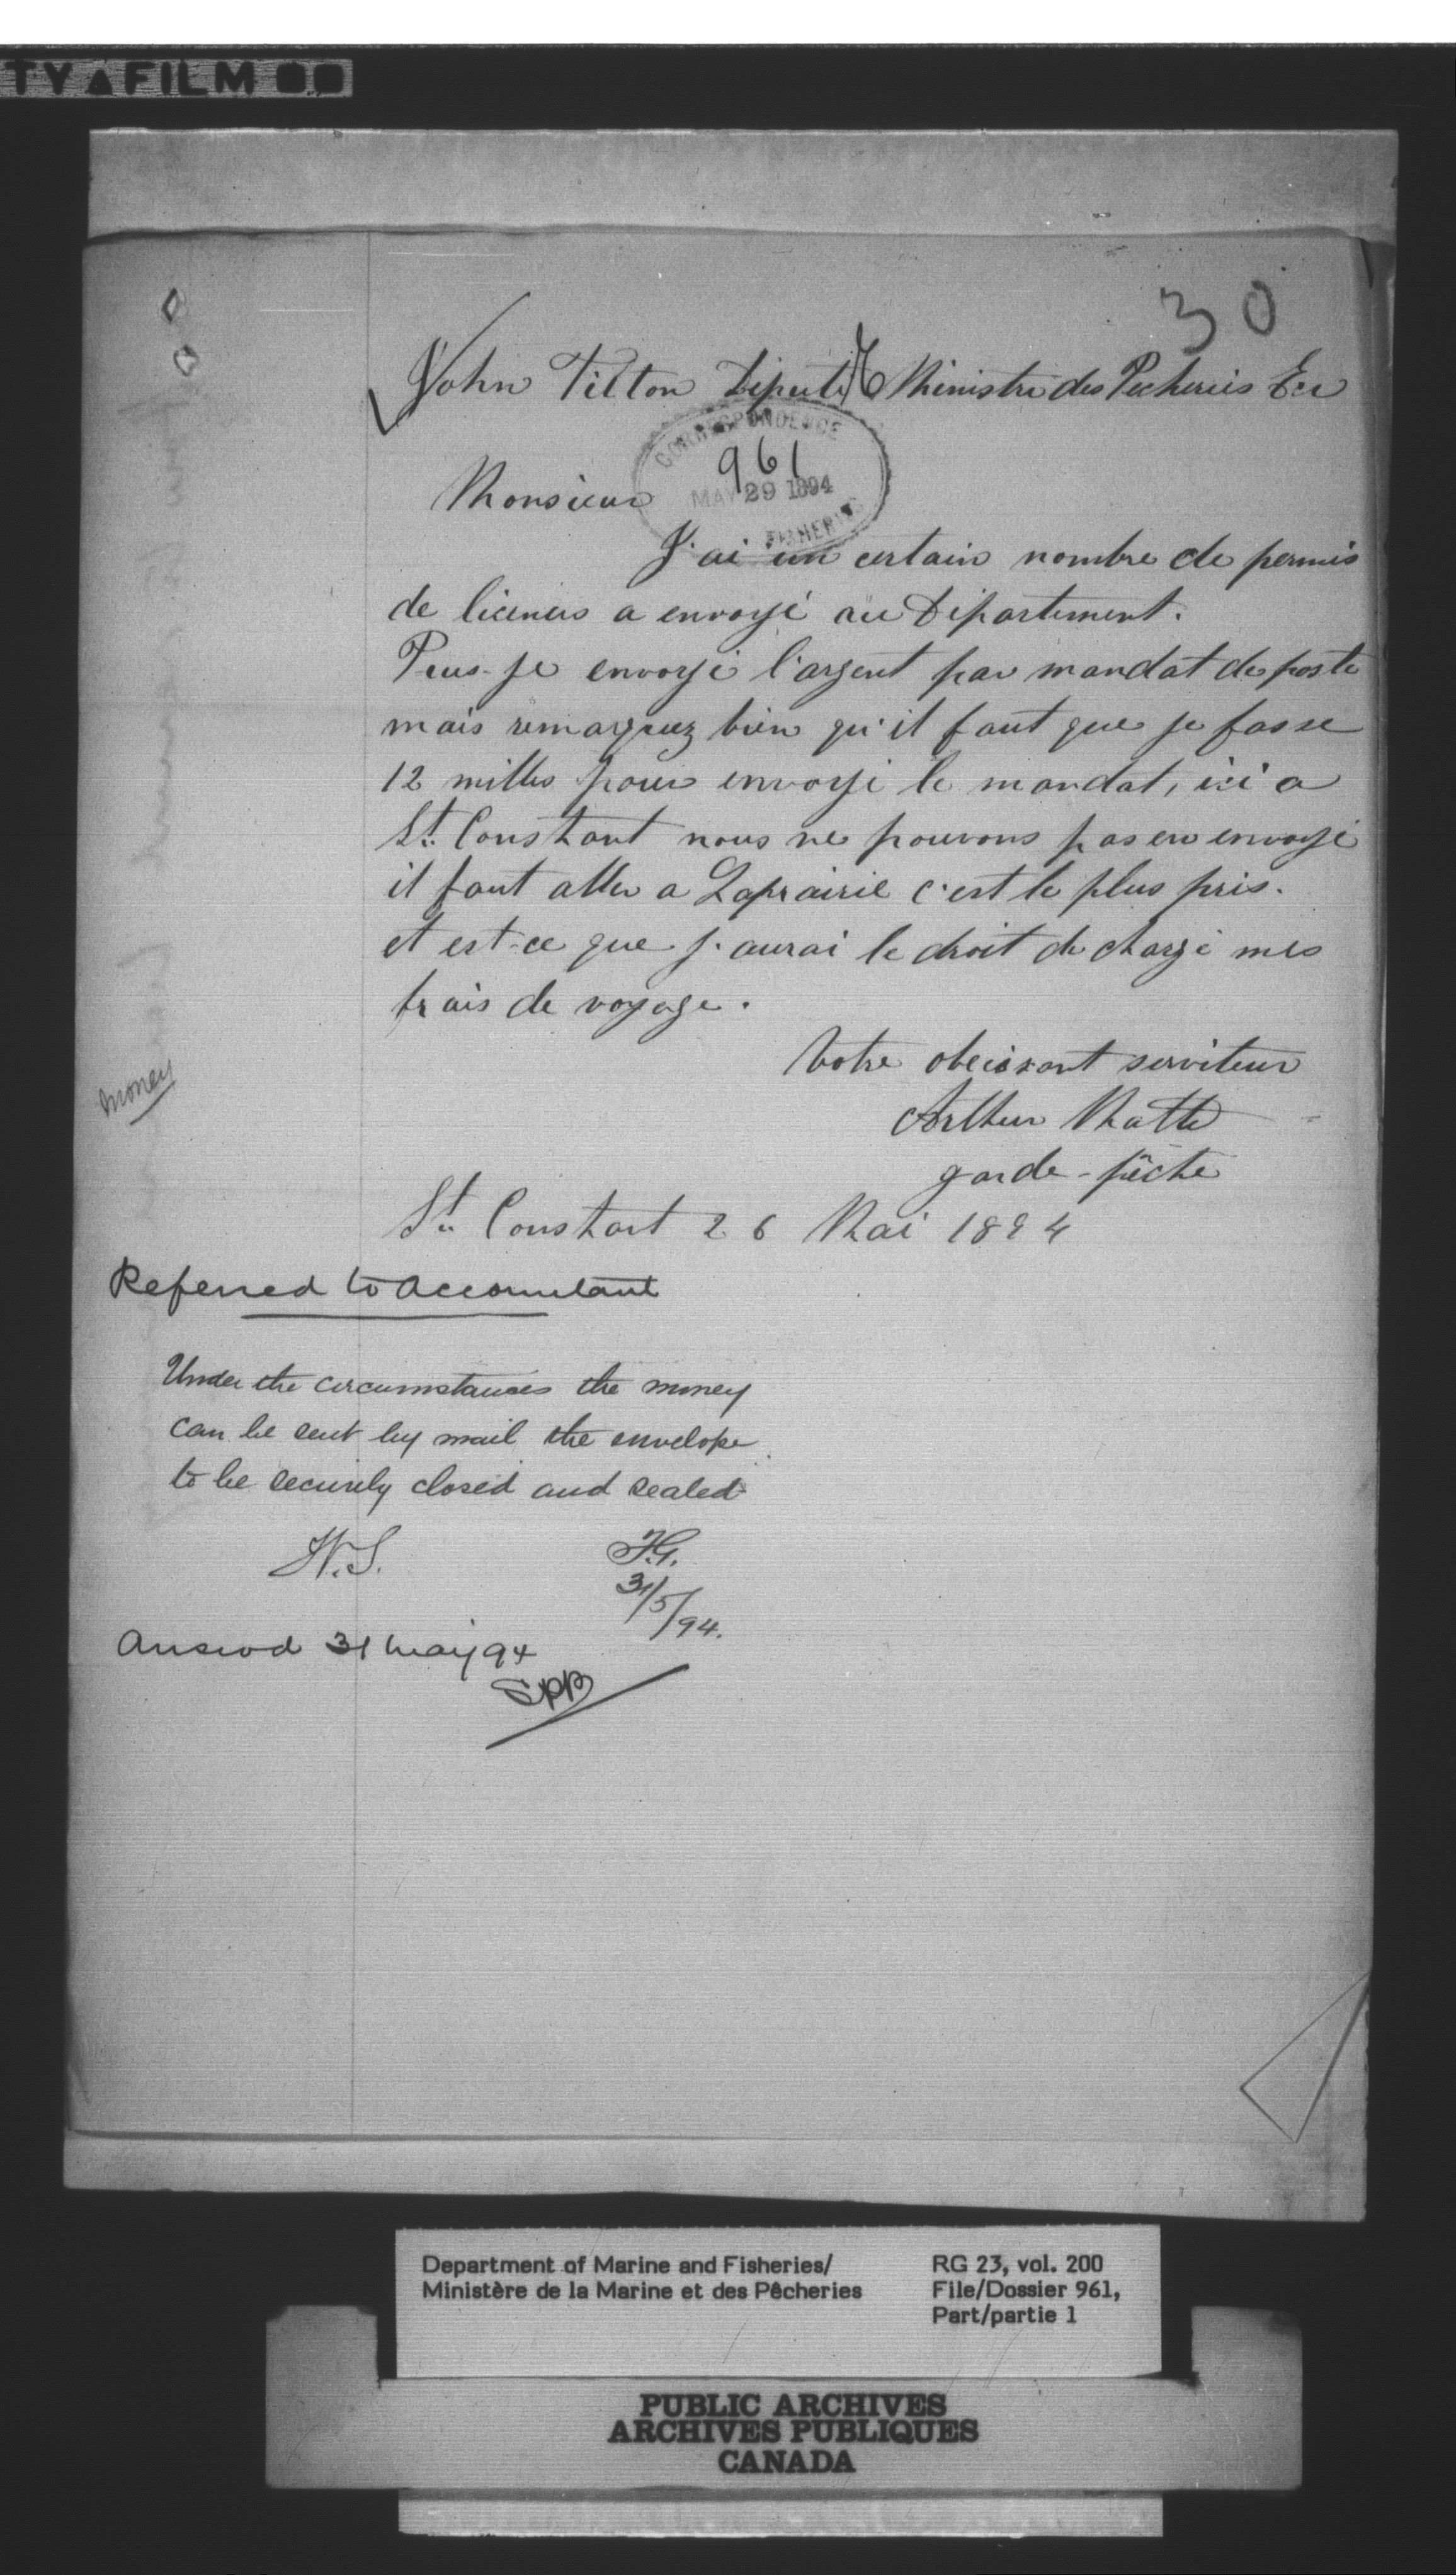 TY▲FILM
30
John Tilton Député Ministre des Pecheries Ecr
CORRESPONDENCE
961
MAY 29 1894
FISHERIES
Monsieur
J'ai un certain nombre de permis
de licences a envoyé au Département.
Puis-je envoyé l'argent par mandat de poste
mais remarquez bien qu'il faut que je fasse
12 milles pour envoyé le mandat, ici a
St. Constant nous ne pouvons pas en envoyé
il faut aller a Laprairie c'est le plus près.
et est-ce que j'aurai le droit de chargé mes
frais de voyage.
Votre obeissant serviteur
Arthur Matte
garde-pêche
money
St. Constant 26 Mai 1894
Referred to Accountant
Under the circumstances the money
can be sent by mail the envelope
to be securely closed and sealed
F.G.
31/5/94.
Answd 31 May 94
SPB
Department of Marine and Fisheries/
Ministère de la Marine et des Pêcheries
RG 23, vol. 200
File/Dossier 961,
Part/partie 1
PUBLIC ARCHIVES
ARCHIVES PUBLIQUES
CANADA